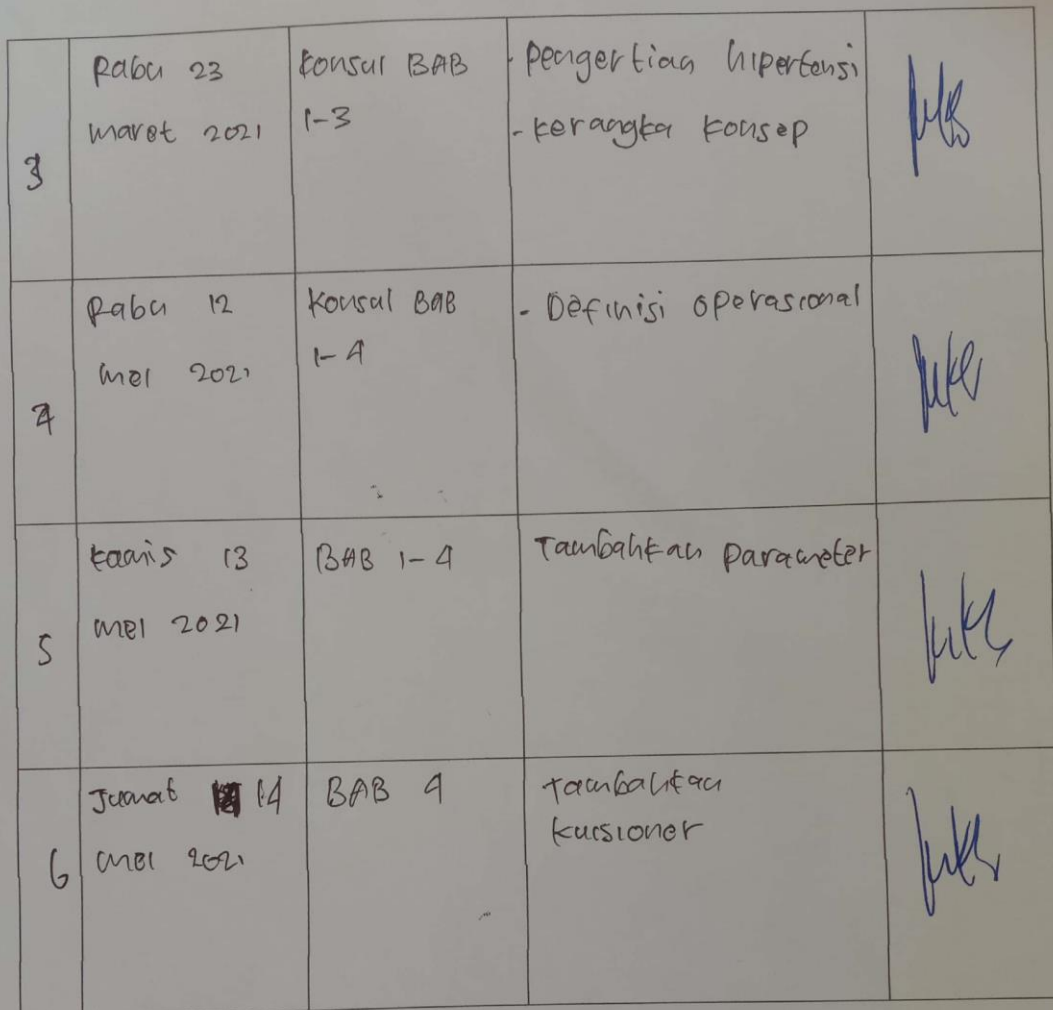 3
Rabu 23
maret 2021
Konsul BAB
1-3
- Pengertian hipertensi
- kerangka konsep
4
Rabu 12
mei 2021
Konsul BAB
1-4
- Definisi operasional
5
Kamis 13
mei 2021
BAB 1-4
Tambahkan parameter
6
Jumat 14
mei 2021
BAB 4
Tambahkan
kuisioner